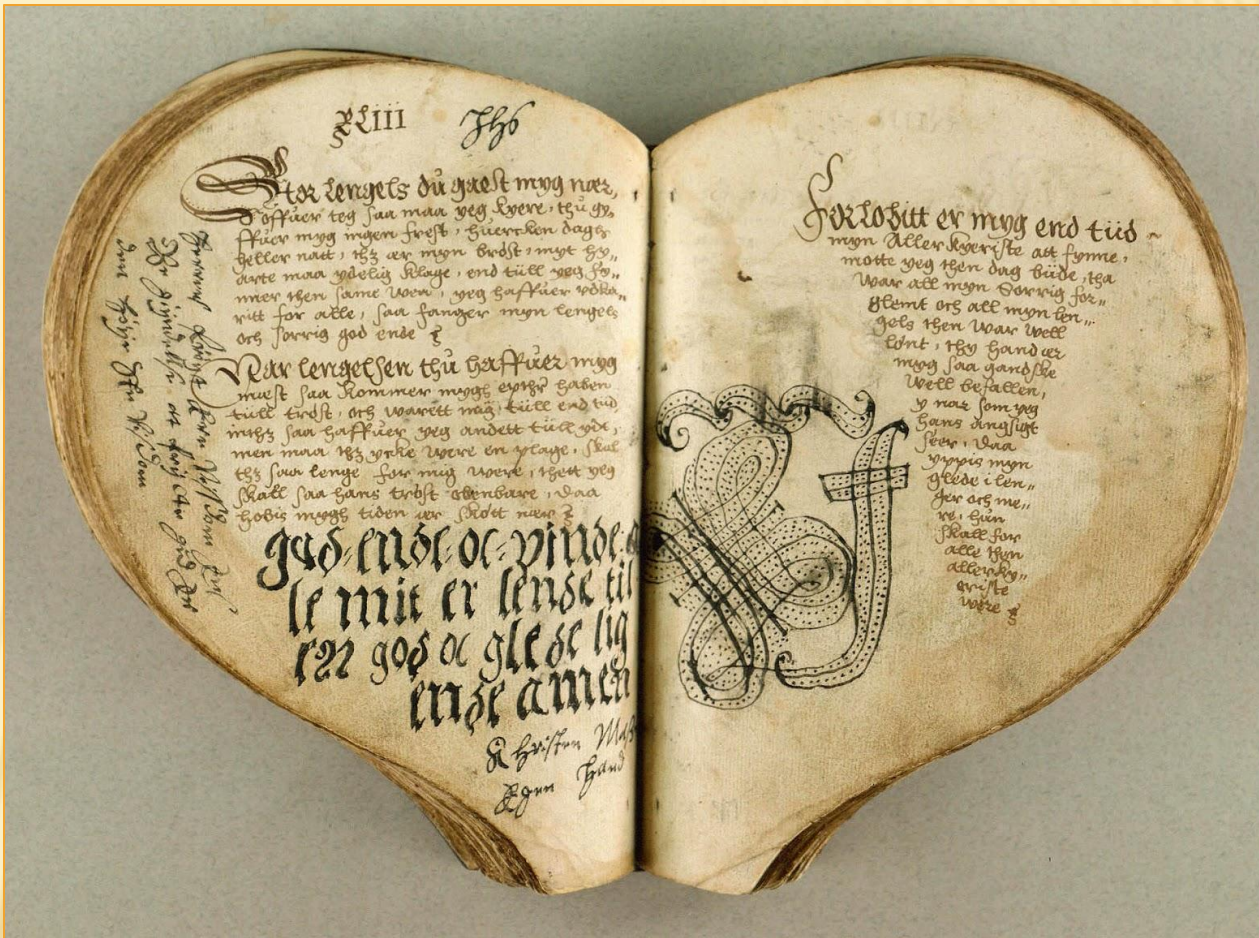 XLIII Jhs
Stor lengels du gaest myg nær,
offuer teg saa maa yeg kyere, thu gy„
ffuer myg ingen frest, huercken dagh
heller natt, thz ær myn bröst, myt hy„
arte maa ydelig klage, end tüll yeg fy„
nner then same wen, yeg haffuer vdka„
ritt for alle, saa fanger myn lengels
och sorrig god ende
Nar lengelsen thu haffuer myg
mest saa kommer mygh epthr haben
tüll tröst, och warett mig tüll end tüd
inthz saa haffuer yeg andett tüll ydt,
men maa thz ycke were en plage, skul
thz saa lenge for mig were, thett yeg
skall saa hans tröst obenbare, daa
hobis mygh tiden ær skött nær
gud ende oc vinde
le mit er lende til
en god oc glede lig
ende amen
Christen
Egen Hand
Forlobitt er myg end tüd
myn aller kyeriste att fynne,
motte yeg then dag büde, tha
war all myn sorrig for„
glemt och all myn len„
gels then war well
lönt, thy hand ær
myg saa gandske
well befallen,
y nar som yeg
hans angsigt
seer, daa
yppis myn
glede i len„
ger och me„
re, hun
skall for
alle thyn
allerky„
eriste
were